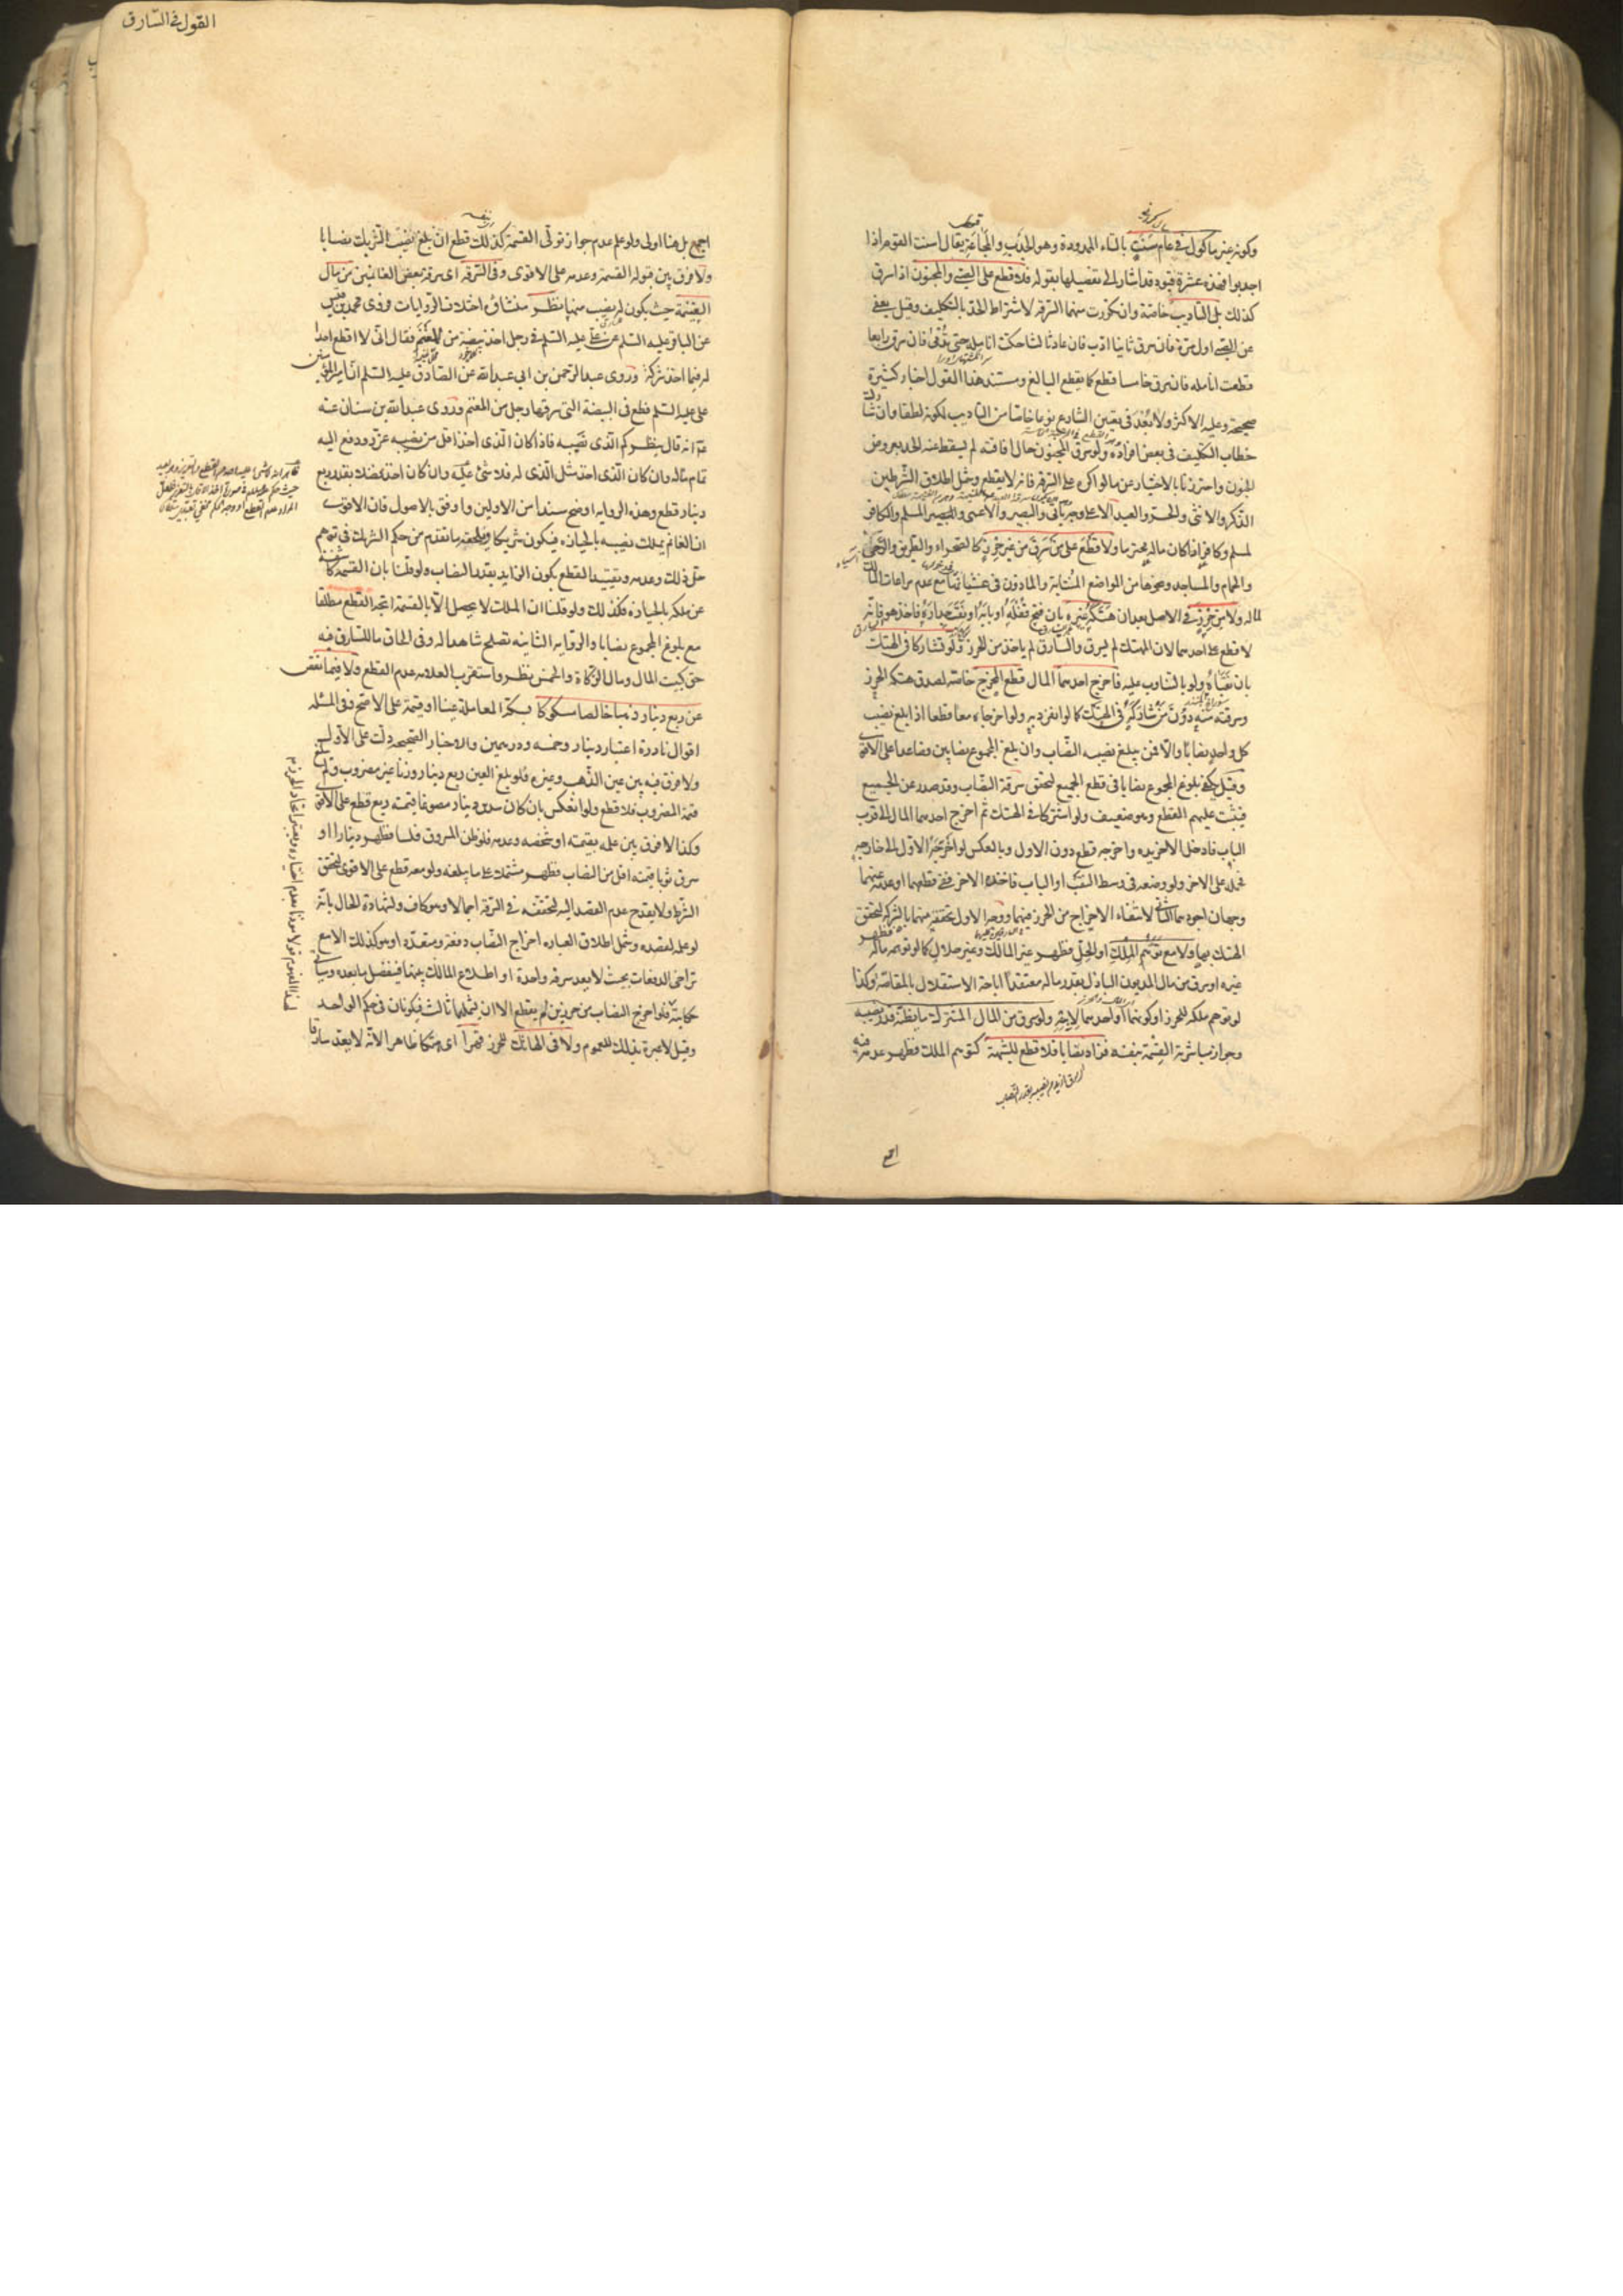 وكونه غير مأكول في عام سنت بالتاء الممدودة وهو الجدب والمجاعة يقال اسنت القوم اذا
اجدبوا فهذه عشرة قيود قد اشار الى تفصيلها بقوله فلا قطع على الصبي والمجنون اذا سرق
كذلك بل التاديب خاصة وان تكررت منهما السرقة لاشتراط الحد بالتكليف وقيل يعفى
عن الصبي اول مرة فان سرق ثانيا ادب فان عاد ثالثا حكت انامله حتى تدمى فان سرق رابعا
قطعت انامله فان سرق خامسا قطع كما يقطع البالغ ومستند هذا القول اخبار كثيرة
صحيحة وعليه الاكثر ولا بعد في تعيين الشارع نوعا خاصا من التاديب لكونه لطفا وان شارك
خطاب التكليف في بعض افراده ولو سرق المجنون حال افاقته لم يسقط عنه الحد بعروض
الجنون واحترزنا بالاختيار عن ما لو اكره على السرقة فانه لا يقطع وشمل اطلاق الشرطين
الذكر والانثى والحر والعبد الا على وجه ياتي والبصير والاعمى والمسلم والكافر
لمسلم وكافر اذا كان ماله محترما ولا قطع على من سرق من غير حرز كالصحراء والطريق والرحى
والحمام والمساجد ونحوها من المواضع المنتابة والماذون في غشيانها مع عدم مراعات المالك
لماله ولا من حرز في الاصل بعد ان هتكه غيره بان فتح قفله او بابه او نقب جداره فاخذ هو فانه
لا قطع على احدهما لان المهتك لم يسرق والسارق لم ياخذ من الحرز ولو تشاركا في الهتك
بان نقباه ولو بالتناوب عليه فاخرج احدهما المال قطع المخرج خاصة لصدق هتكه الحرز
وسرقته منه دون من شاركه في الهتك كما لو انفرد به ولو اخرجاه معا قطعا اذا بلغ نصيب
كل واحد نصابا والا فمن يبلغ نصيبه النصاب وان بلغ المجموع نصابين فصاعدا على الاقوى
وقيل يكفي بلوغ المجموع نصابا في قطع الجميع لتحقق سرقة النصاب وقد صدر عن الجميع
فيثبت عليهم القطع وهو ضعيف ولو اشتركا في الهتك ثم اخرج احدهما المال الى قرب
الباب فادخل الاخر يده واخرجه قطع دون الاول وبالعكس لو اخرجه الاول الى خارجه
فحمله الاخر ولو وضعه في وسط النقب او الباب فاخذه الاخر ففي قطعهما او عدمه عنهما
وجهان اجودهما الثاني لانتفاء الاخراج من الحرز فيهما ووجه الاول تحققه منهما بالشركة كتحقق
الهتك بها ولا مع توهم الملك او الحل فظهر غير المالك وغير حلال كما لو توهمه ماله فظهر
غيره او سرق من مال المديون الباذل بقدر ماله معتقدا اباحة الاستقلال بالمقاصة وكذا
لو توهم ملكه للحرز او كونهما او احدهما لابنه ولو سرق من المال المشترك ما يظنه قدر نصيبه
وجواز مباشرته القسمة بنفسه فزاد نصابا فلا قطع للشبهة كتوهم الملك فظهر عدمه فيه
القول في السارق
اجمع بل هنا اولى ولو علم عدم جواز تولي القسمة كذلك قطع ان بلغ نصيب الشريك نصابا
ولا فرق بين قبوله القسمة وعدمه على الاقوى وفي السرقة اي سرقة بعض الغانمين من مال
الغنيمة حيث يكون له نصيب منها نظر منشاؤه اختلاف الروايات فروى محمد بن قيس
عن الباقر عليه السلم عن علي عليه السلم في رجل اخذ بيضة من المغنم فقال اني لا اقطع احدا
له فيما اخذ شركة وروى عبد الرحمن بن ابي عبد الله عن الصادق عليه السلم ان امير المؤمنين
علي عليه السلم قطع في البيضة التي سرقها رجل من المغنم وروى عبد الله بن سنان عنه
ع انه قال ينظركم الذي نصيبه فاذا كان الذي اخذ اقل من نصيبه عزر ودفع اليه
تمام ماله وان كان الذي اخذ مثل الذي له فلا شئ عليه وان كان اخذ فضلا بقدر ربع
دينار قطع وهذه الرواية اوضح سندا من الاولين واوفق بالاصول فان الاقوى
ان الغانم يملك نصيبه بالحيازه فيكون شريكا ويلحقه ما تقدم من حكم الشريك في توهمه
حل ذلك وعدمه وتقييد القطع بكون الزايد بقدر النصاب ولو قلنا بان القسمة كاشفة
عن ملكه بالحيازة فكذلك ولو قلنا ان الملك لا يحصل الا بالقسمة اتجه القطع مطلقا
مع بلوغ المجموع نصابا والرواية الثانية تصلح شاهدا له وفي الحاق ما للسارق فيه
حق كبيت المال ومال الزكاة والخمس نظر واستقرب العلامه عدم القطع ولا فيما نقص
عن ربع دينار ذهبا خالصا مسكوكا بسكة المعاملة عينا او قيمة على الاصح وفي المسئله
اقوال نادرة اعتبار دينار وخمسه ودرهمين والاخبار الصحيحه دلت على الاول
ولا فرق فيه بين عين الذهب وغيره فلو بلغ العين ربع دينار وزنا غير مضروب ولم تبلغ
قيمة المضروب فلا قطع ولو انعكس بان كان سدس دينار مصوغا قيمته ربع قطع على الاقوى
وكذا لا فرق بين علمه بقيمته او شخصه وعدمه فلو ظن المسروق فلسا فظهر دينارا او
سرق ثوبا قيمته اقل من النصاب فظهر مشتملا على ما يبلغه ولو معه قطع على الاقوى لتحقق
الشرط ولا يقدح عدم القصد اليه لتحققه في السرقة اجمالا وهو كاف ولشهادة الحال بانه
لو علمه لقصده وشمل اطلاق العباره اخراج النصاب دفعة ومتعددا وهو كذلك الا مع
تراخي الدفعات بحيث لا يعد سرقة واحدة او اطلاع المالك بينهما فينفصل ما بعده وسياتي
حكايته فلو اخرج النصاب من حرزين لم يقطع الا ان يشملهما ثالث فيكونان في حكم الواحد
وقيل لا عبرة بذلك للعموم ولا في الهاتك للحرز قهرا اي هتكا ظاهرا لانه لا يعد سارقا